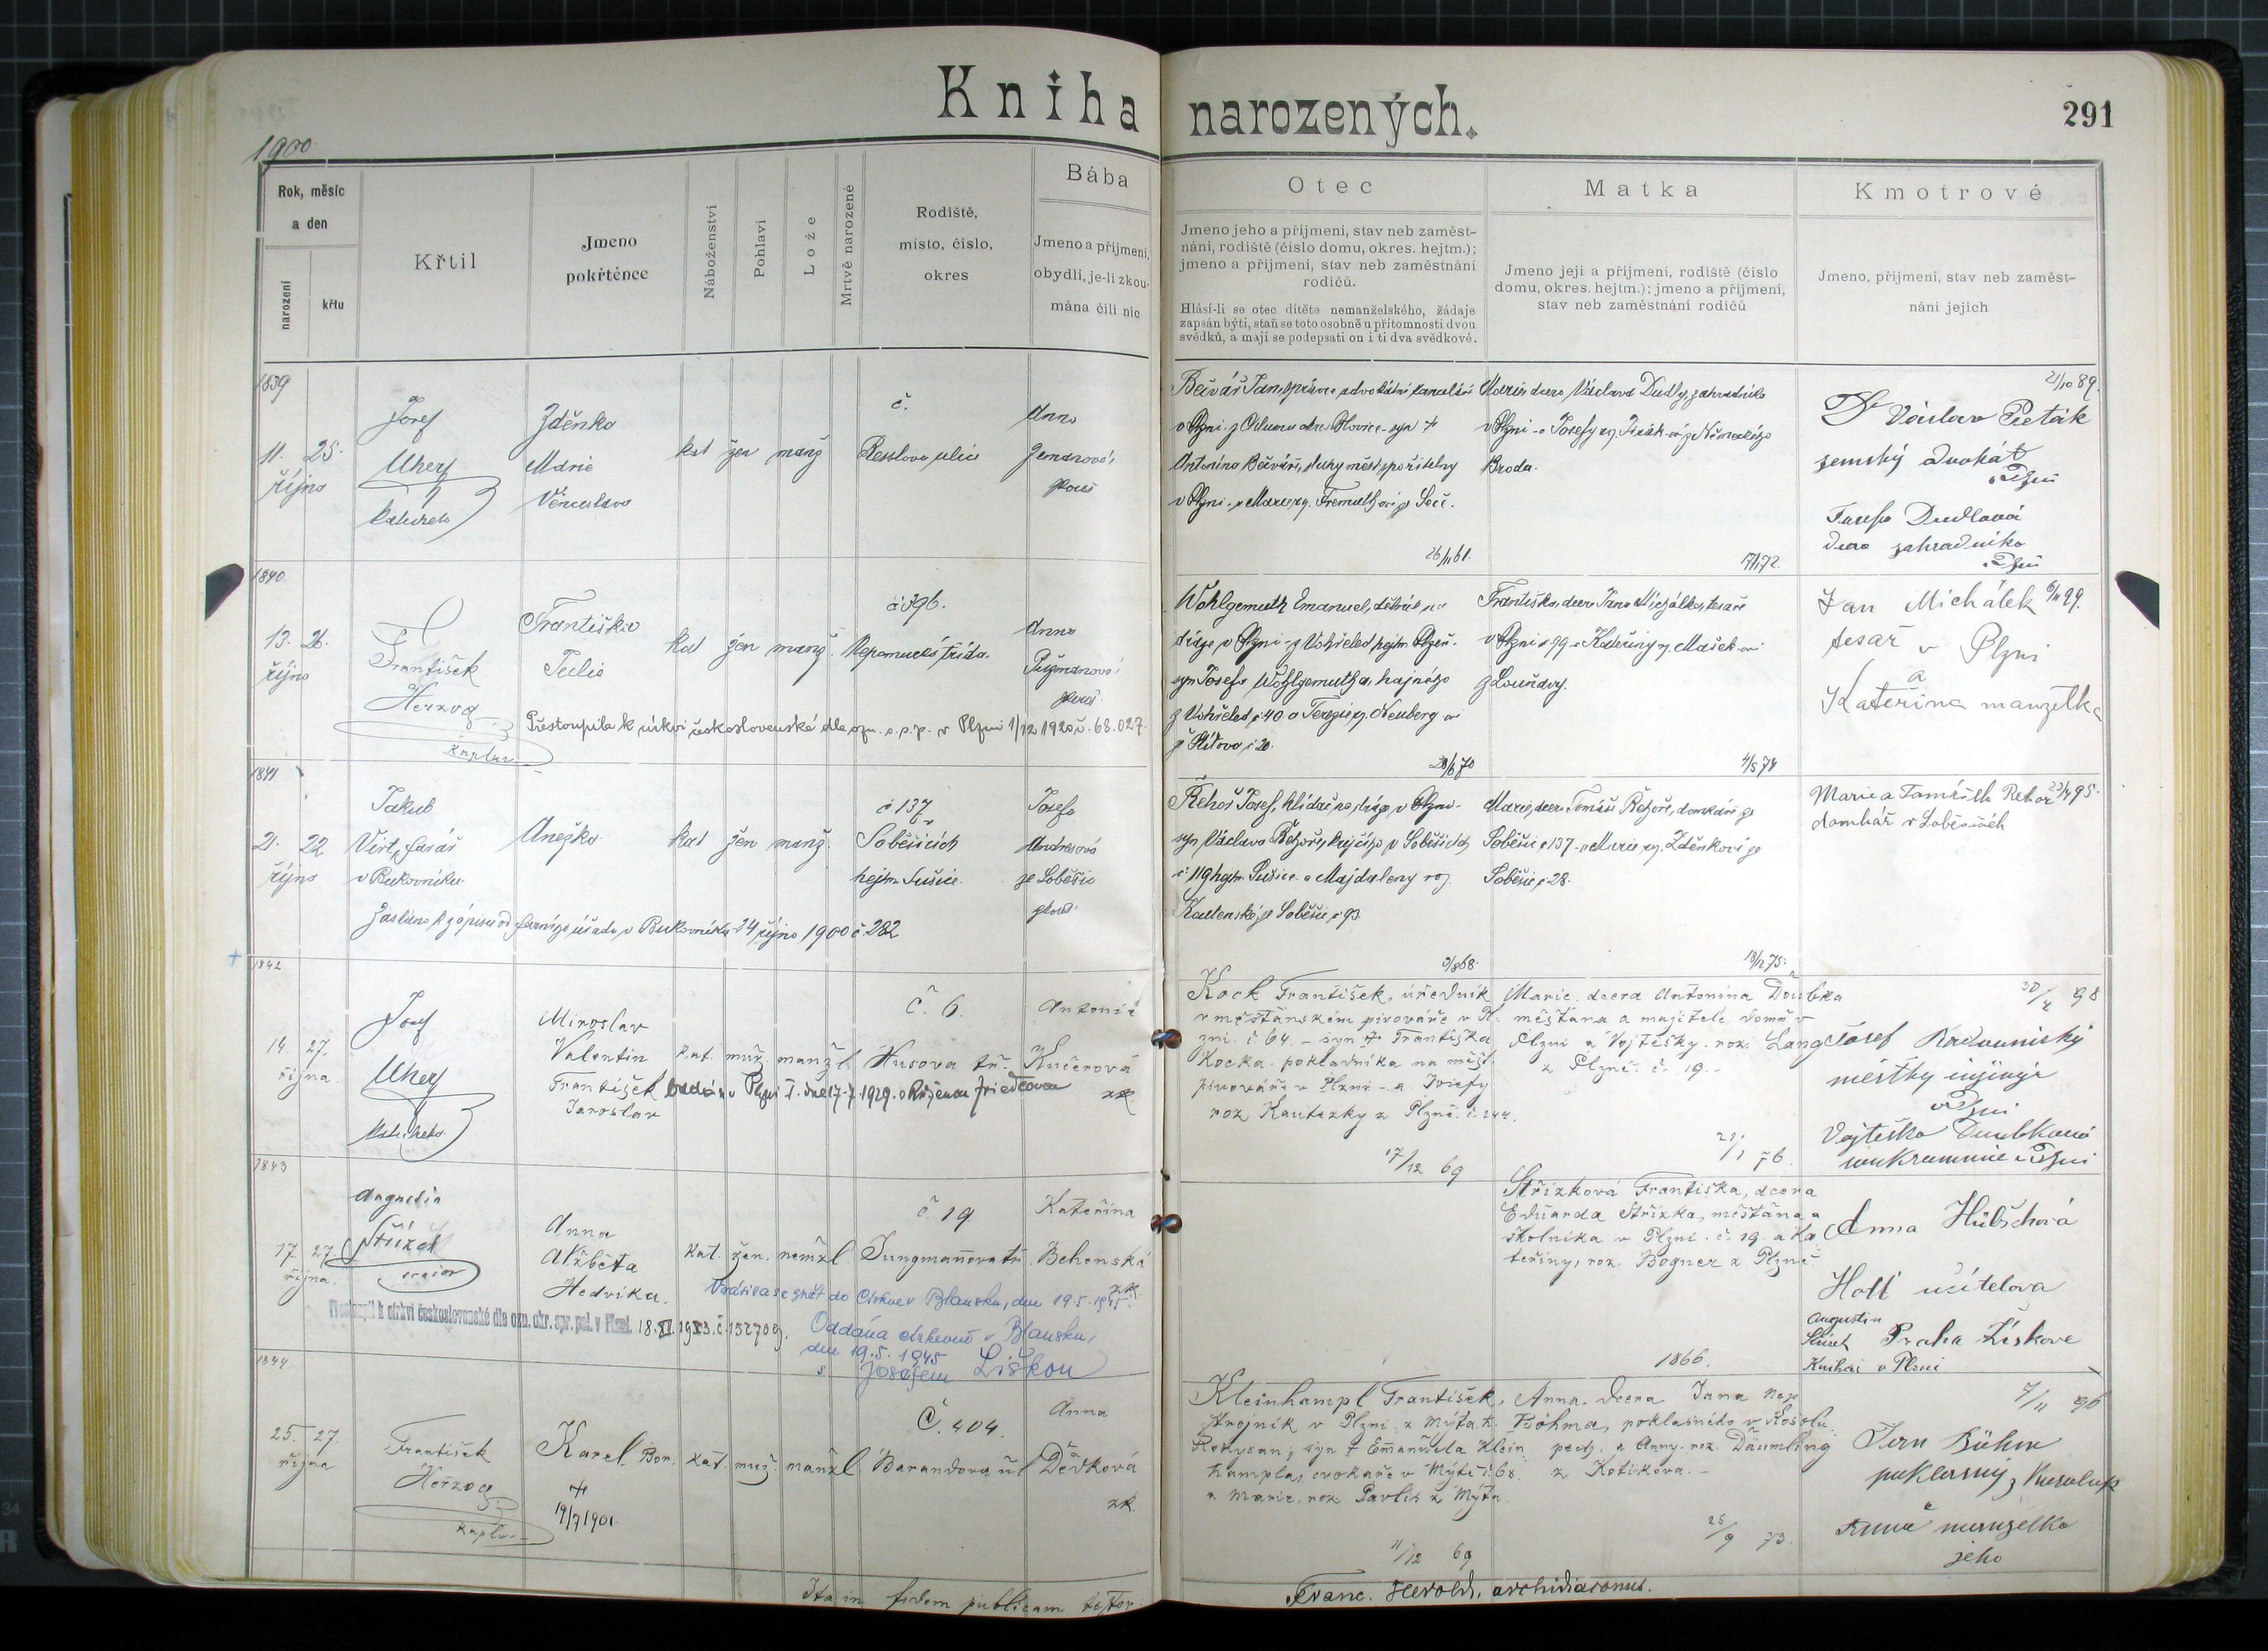 Kniha narozených.
291
1900
Rok, měsíc
a den
narození
křtu
Křtil
Jmeno
pokřtěnce
Náboženství
Pohlaví
Lože
Mrtvě narozené
Rodiště,
místo, číslo,
okres
Bába
Jmeno a příjmení,
obydlí, je-li zkou-
mána čili nic
Otec
Jmeno jeho a příjmení, stav neb zaměst-
nání, rodiště (číslo domu, okres. hejtm.);
jmeno a příjmení, stav neb zaměstnání
rodičů.
Hlásí-li se otec dítěte nemanželského, žádaje
zapsán býti, staň se toto osobně u přítomnosti dvou
svědků, a mají se podepsati on i ti dva svědkové.
Matka
Jmeno její a příjmení, rodiště (číslo
domu, okres. hejtm.); jmeno a příjmení,
stav neb zaměstnání rodičů
Kmotrové
Jmeno, příjmení, stav neb zaměst-
nání jejich
1839
11. 25.
října
Josef
Uherf
Zděnka
Marie
Věnceslava
kat žen manž
č.
Resslova ulice
Anna
Zemanová
Bečvář Jan, správce advokátní kanceláře
Antonína Bečváře, sluhy měst. spořitelny
26/11 61.
Marie, dcera Václava Dudly, zahradníka
Broda.
7/1 72.
21/10 89.
Dr Václav Peták
zemský advokát
v Plzni
Josefa Dudlová
dcera zahradníka
v Plzni
1840
13. 26.
října
František
Herzog
kaplan
Františka
Julie
kat žen manž.
č 396.
Nepomucká třída.
Anna
zkouš.
Přestoupila k církvi československé dle ozn. o. s. p. v Plzni 1/12 1920 č. 68.027.
Wohlgemuth Emanuel, dělník na
dráze v Plzni
syn Josefa Wohlgemutha, hajného
č 40 a Terezie roz. Neuberg ové
28/6 70
Františka, dcera Jana Michálka, tesaře
v Plzni č 99 a Kateřiny roz. Mašek ové
4/5 74
6/11 99.
Jan Michálek
tesař v Plzni
a
Kateřina manželka
1841
21. 22
října
Jakub
Virt, farář
v Bukovníku
Anežka
kat žen manž.
č 137
v
Soběšicích
hejtm Sušice.
Josefa
Andresová
ze Soběšic
zkouš.
Zasláno k zápisu od farního úřadu v Bukovníku 24 října 1900 č 282
Řehoř Josef, hlídač na dráze v Plzni-
syn Václava Řehoře, krejčího v Soběšicích
č 119 hejtm. Sušice a Majdaleny roz.
ze Soběšic č 93.
9/8 68.
Marie, dcera Tomáše Řehoře, domkáře ze
Soběšic č 137 a Marie roz. Zděnkové ze
Soběšic č 28.
18/12 75.
Marie a Tomáš Řehoř
domkář v Soběšicích
1842
14. 27.
října.
Josef
Uherf
Miroslav
Valentin
František
Jaroslav
kat. muž. manžl.
č 6.
Husova tř.
Antonie
Kučerová
zk.
Oddán v Plzni I. dne 17.7.1929. s Růženou Friedlovou
Kock František, úředník
v měšťanském pivováře v Pl-
zni č 64. - syn † Františka
Kocka pokladníka na měšť.
pivováře v Plzni - a Josefy
roz Kautzky z Plzně. č. 144.
17/12 69
Marie. dcera Antonína Doubka
měšťana a majitele domu v
Plzni a Vojtěšky. roz. Lang
z Plzně. č. 19. -
21/1 76.
30/4 98
Josef
městský inženýr
v Plzni
Vojtěška Doubková
soukromnice v Plzni
1843
17. 27.
října.
Augustin
Střízek
Anna
Alžběta
Hedvika.
kat. žen. nemžl
č. 19
Jungmannova tř.
Kateřina
Behenská
zk.
Vrátila se zpět do Církve v Blansku, dne 19.5.1945.
Přestoupil k církvi československé dle ozn. okr. spr. pol. v Plzni. 18.XI.1933. č. 152709.
Oddána církevně v Blansku,
dne 19.5.1945
s Josefem Liškou
Střízková Františka, dcera
Eduarda Střízka, měšťana a
školníka v Plzni. č. 19. a Ka-
teřiny, roz. Bogner z Plzně.
1866.
Anna Hübschová
Hotl učitelova
Praha Žiškove
Augustin
Střízek
v Plzni
1844.
25. 27.
října
František
Herzog
kaplan
Karel Bor.
†
19/7 1901.
kat. muž. manžl
č. 404.
Barandova ul
Anna
Děvková
zk.
Kleinhampl František,
strojník v Plzni z Mýta h.
Rokycan; syn † Emanuela Klein
hampla, cvokaře v Mýtě č. 68.
a Marie. roz Pavlis z Mýta
11/12 69
Anna. dcera Jana Nep
Böhma, poklasného v Kosolu
pech. a Anny. roz. Däumling
z Kotíkova. -
25/9 73.
7/11 96
Jan Böhm
poklasný z Kosolup
Anna manželka
jeho
Ita in fidem publicam testor
Franc. Herold, archidiaconus.